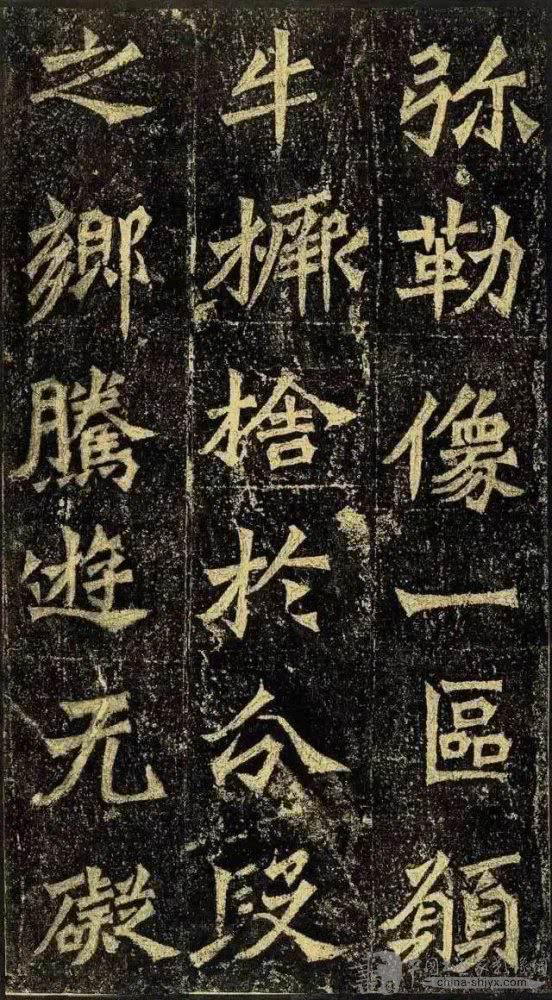 弥勒像一區願
牛橛捨於分段
之鄉騰遊无礙
china-shjyx.com